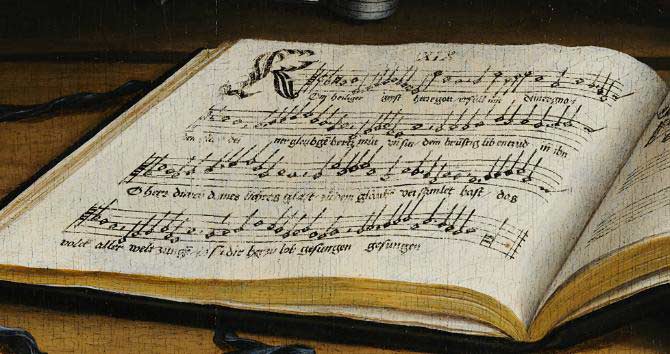 XIX
Kom heiliger geyst herregott erfüll mit
dei ner gleubigē hertz mut vn sin dein brustig lib entzund in ihn
O herr durch deines lichtes glast zu dem glaubē versamlet hast das
volck aller welt dir herzu lob gesungen gesungen